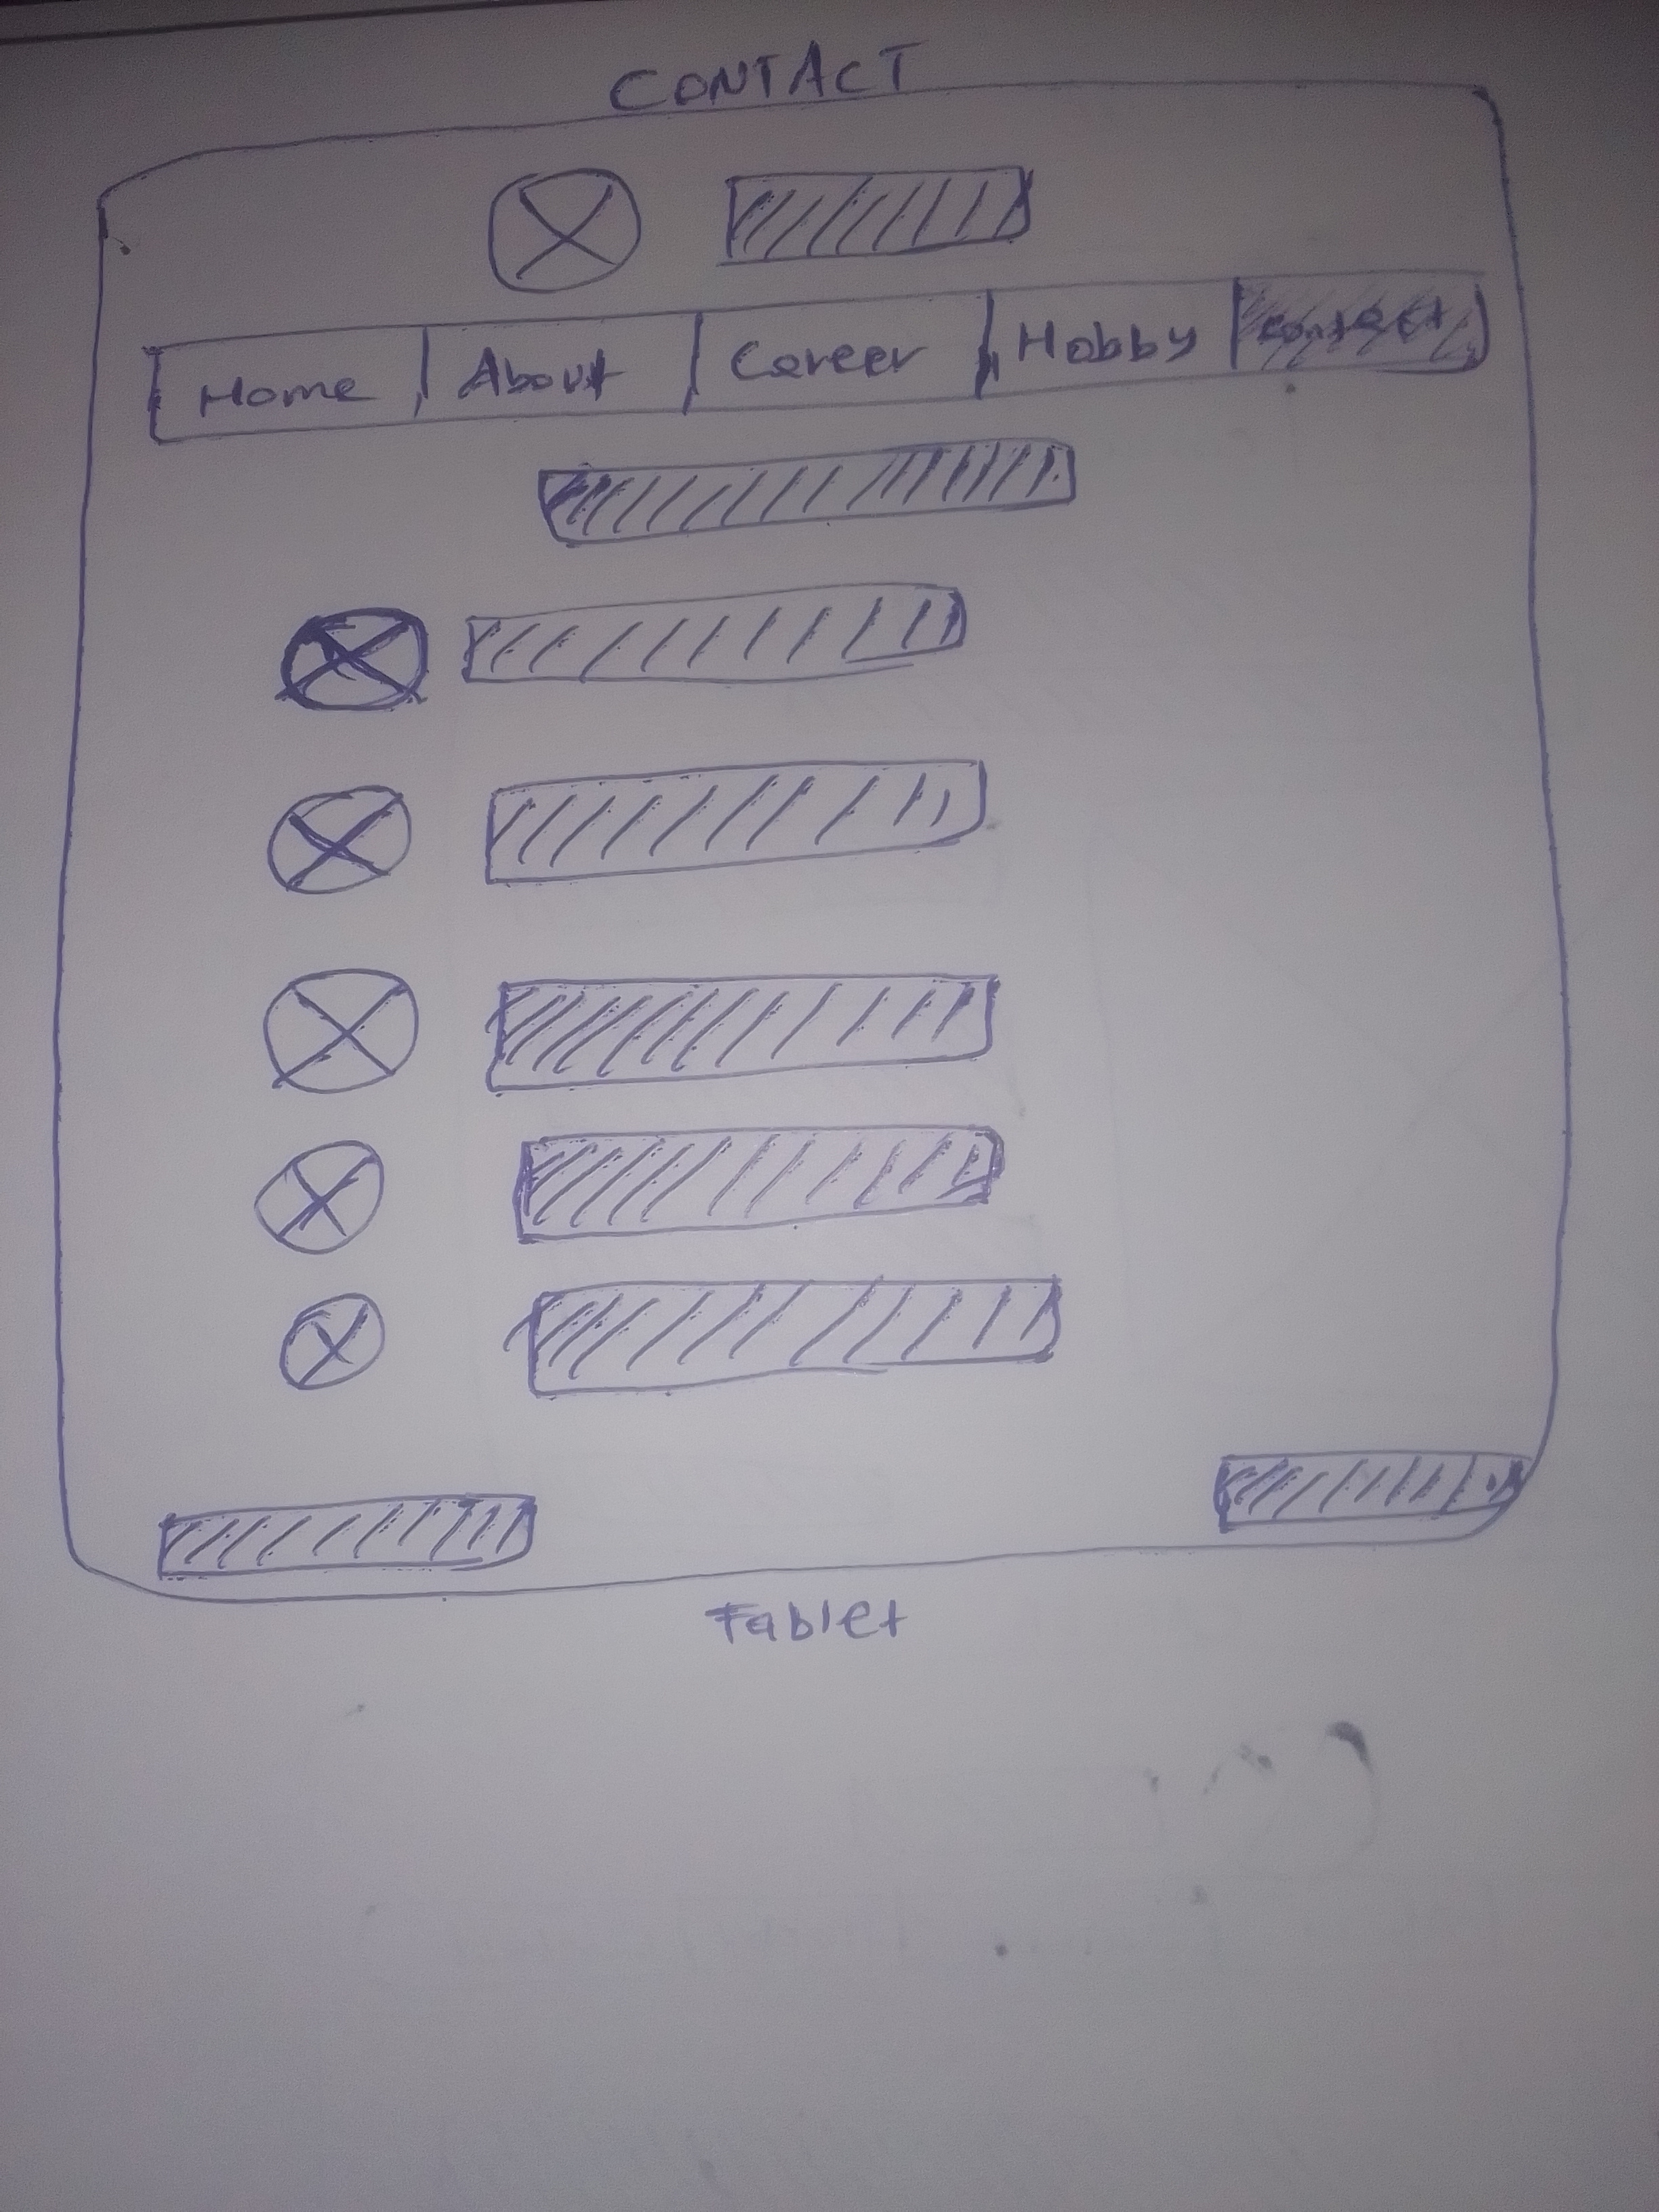 CONTACT
Home About Career Hobby Contact
Tablet